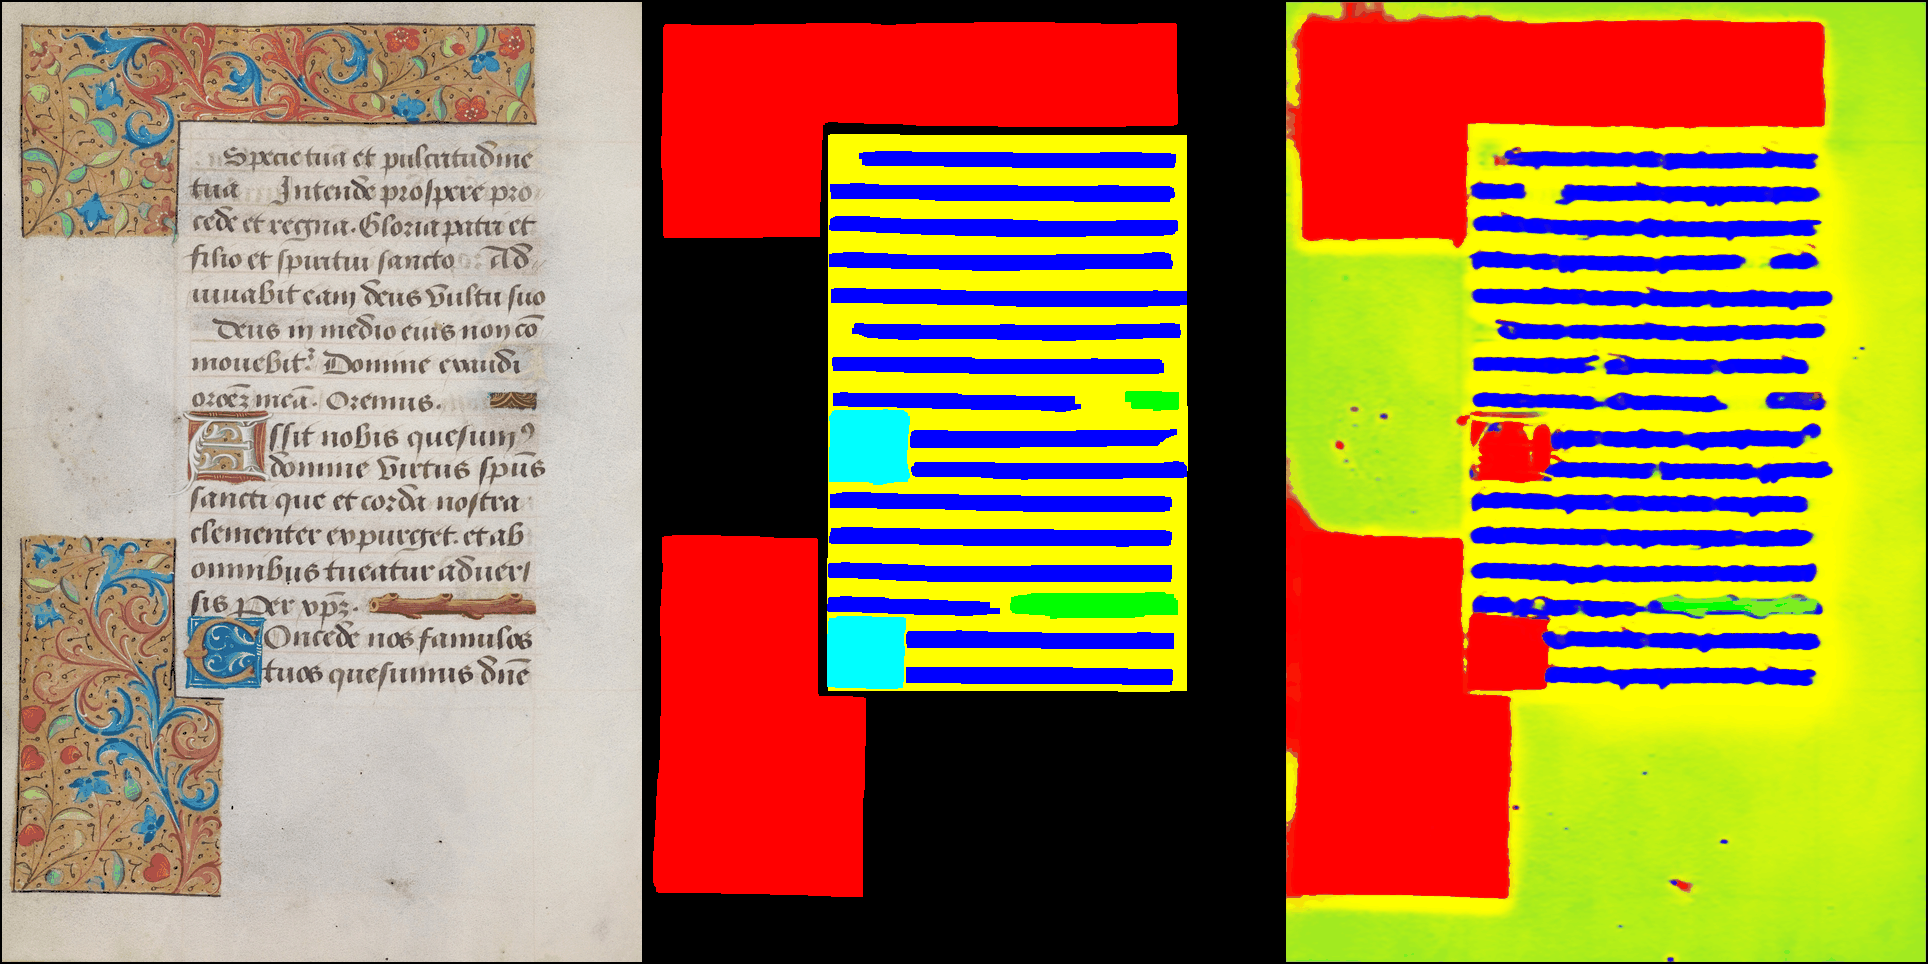 Specie tua et pulcritudine
tua Intende prospere pro
cede et regna. Gloria patri et
filio et spiritui sancto Ad
iuuabit eam deus vultu suo
Deus in medio eius non cō
mouebit᷑ Domine exaudi
oroēz meā. Oremus.
Assit nobis quesumꝰ
domine virtus spūs
sancti que et corda nostra
clementer expurget. et ab
omnibus tueatur aduer
sis Per xp̄z.
Concede nos famulos
tuos quesumus dūe